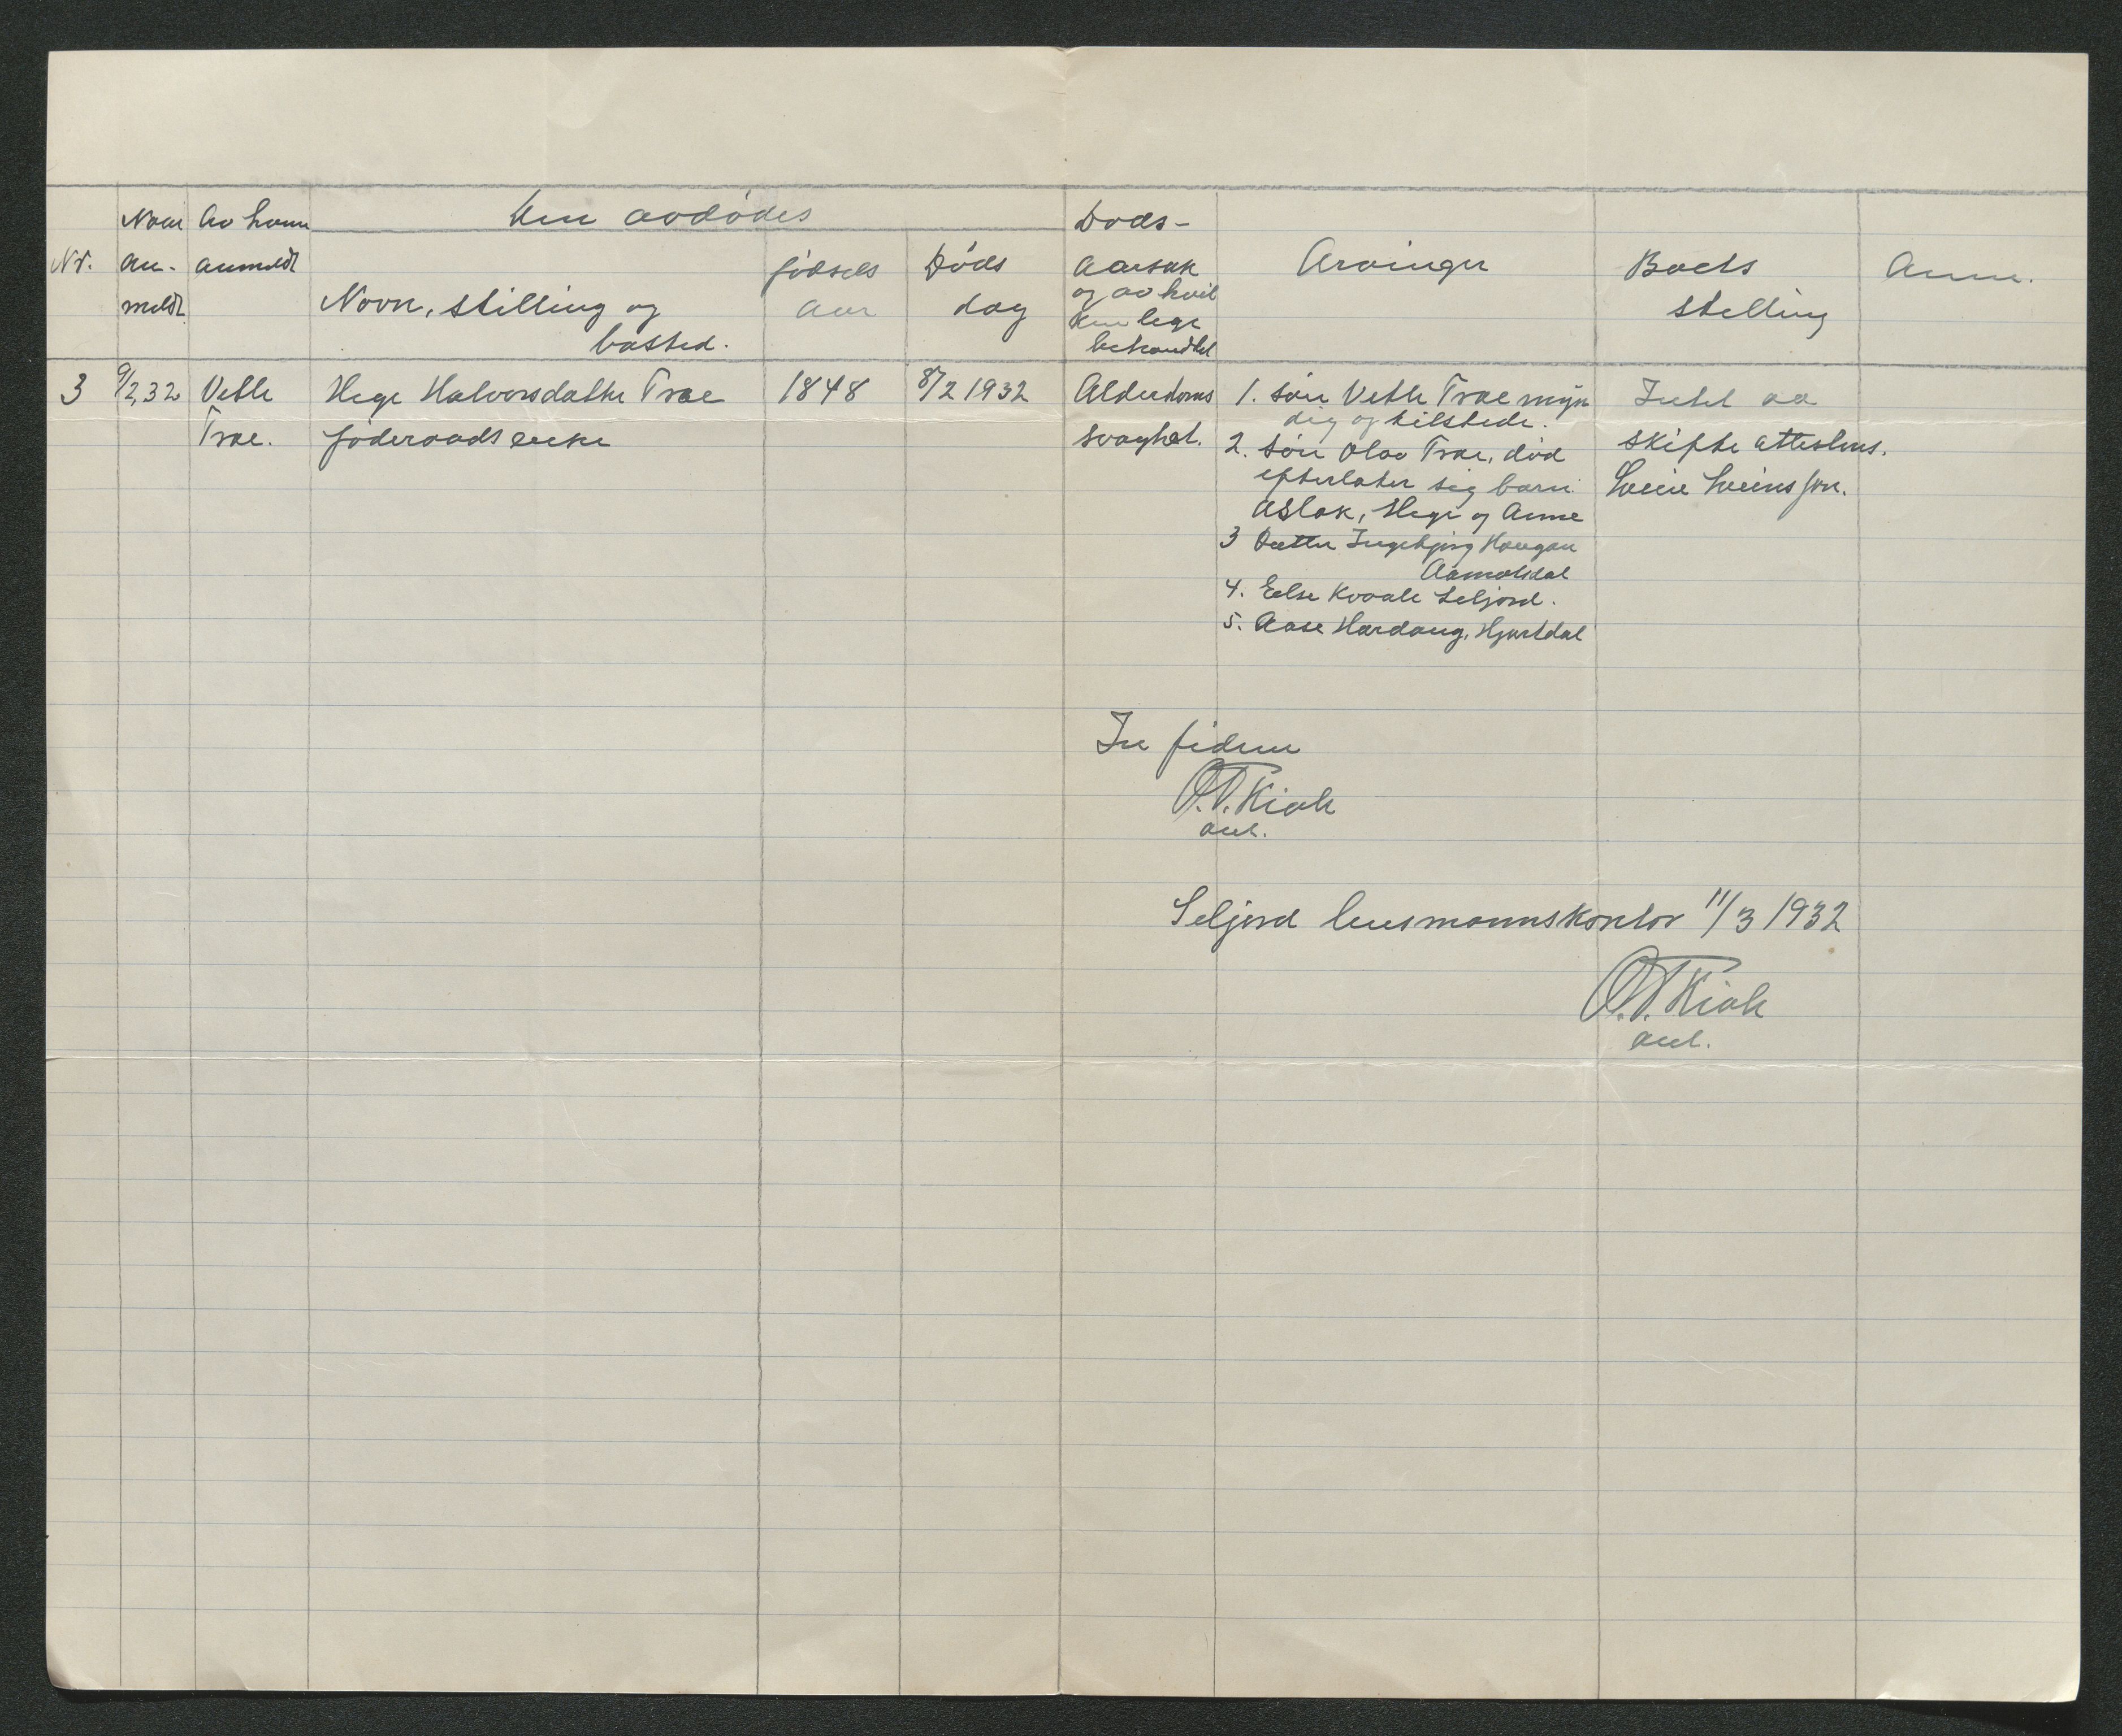 Nr.
Naar an- meldt
Av hvem anmeldt
Den avdødes
Navn, stilling og
bosted.
fødsels
aar
Døds
dag
Døds-
aarsak
og av hvil
ken lege
behandlet
Arvinger
Boets
stilling
Anm.
3
9/2 32
Vetle
Trae.
Hege Halvorsdatter Trae
føderaadsenke
1848
8/2 1932
Alderdoms
svaghet.
1. søn Vetle Trae myn
dig og tilstede.
2. søn Olav Trae, død
efterlater sig barn:
Aslak, Hege og Anne
3 Datter Ingebjørg Haugan
Aamotsdal
4. Else Kvaale Seljord.
5. Aase Hardang, Hjartdal
Intet aa
skifte attesteres.
Svein Sveinsson.
In fidem
O.T. Kiøle
aut.
Seljord lensmannskontor 11/3 1932
O.T. Kiøle
aut.